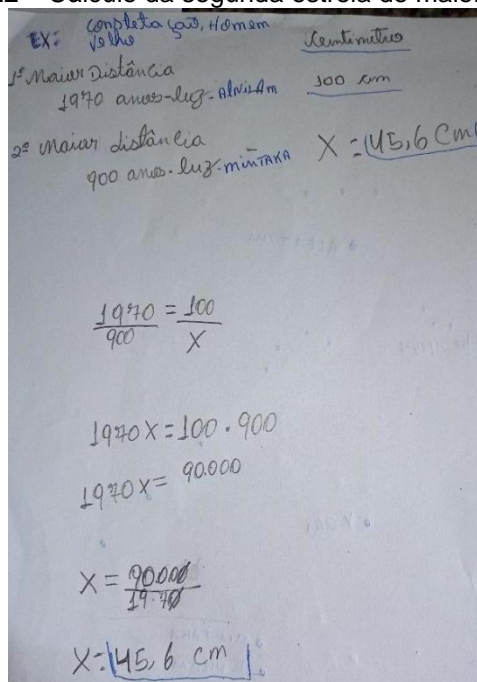 Cálculo da segunda estrela de maior
EX: Conpleta ção, Homem
velho
Centimetros
1º Maior Distância
1970 anos-luz-Alnilam 100 cm
2º maior distância
900 anos-luz-mintaka X = 45,6 Cm
1970 = 100
900 X
1970X = 100 . 900
1970X = 90.000
X = 90000
1970
X = 45,6 cm